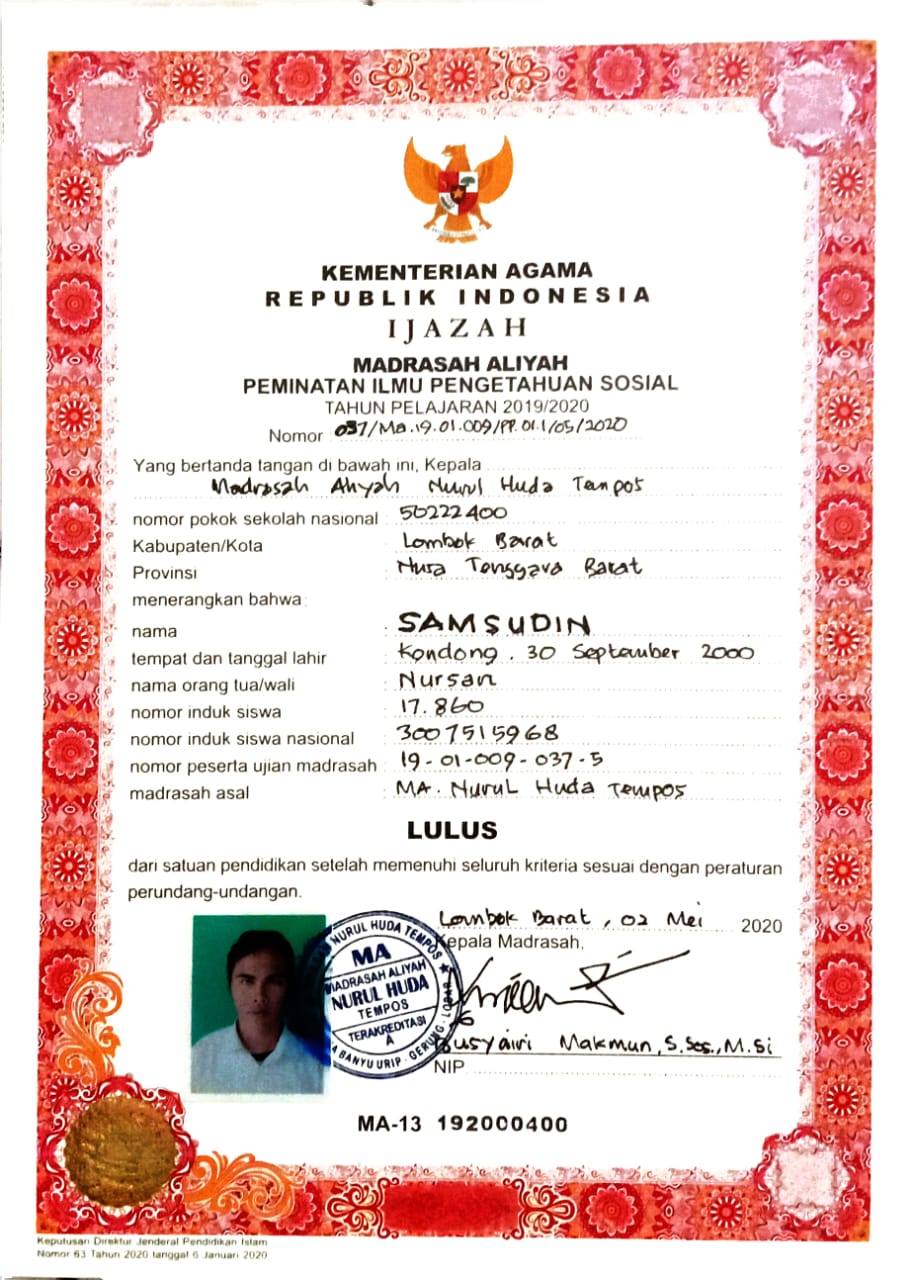 KEMENTERIAN AGAMA
REPUBLIK INDONESIA
IJAZAH
MADRASAH ALIYAH
PEMINATAN ILMU PENGETAHUAN SOSIAL
TAHUN PELAJARAN 2019/2020
Nomor 037/Ma.19.01.009/PP.01.1/05/2020
Yang bertanda tangan di bawah ini, Kepala
Madrasah Aliyah Nurul Huda Tempos
nomor pokok sekolah nasional : 50222400
Kabupaten/Kota : Lombok Barat
Provinsi : Nusa Tenggara Barat
menerangkan bahwa :
nama : SAMSUDIN
tempat dan tanggal lahir : Kondong, 30 September 2000
nama orang tua/wali : Nursan
nomor induk siswa : 17.860
nomor induk siswa nasional : 3007515968
nomor peserta ujian madrasah : 19-01-009-037-5
madrasah asal : MA. Nurul Huda Tempos
LULUS
dari satuan pendidikan setelah memenuhi seluruh kriteria sesuai dengan peraturan
perundang-undangan.
Lombok Barat, 02 Mei 2020
Kepala Madrasah,
NURUL HUDA TEMPOS
MA
MADRASAH ALIYAH
NURUL HUDA
TEMPOS
TERAKREDITASI
A
BANYU URIP - GERUNG - LOBAR
Busyairi Makmun, S.Sos., M.Si
NIP
MA-13 192000400
Keputusan Direktur Jenderal Pendidikan Islam
Nomor 63 Tahun 2020 tanggal 6 Januari 2020